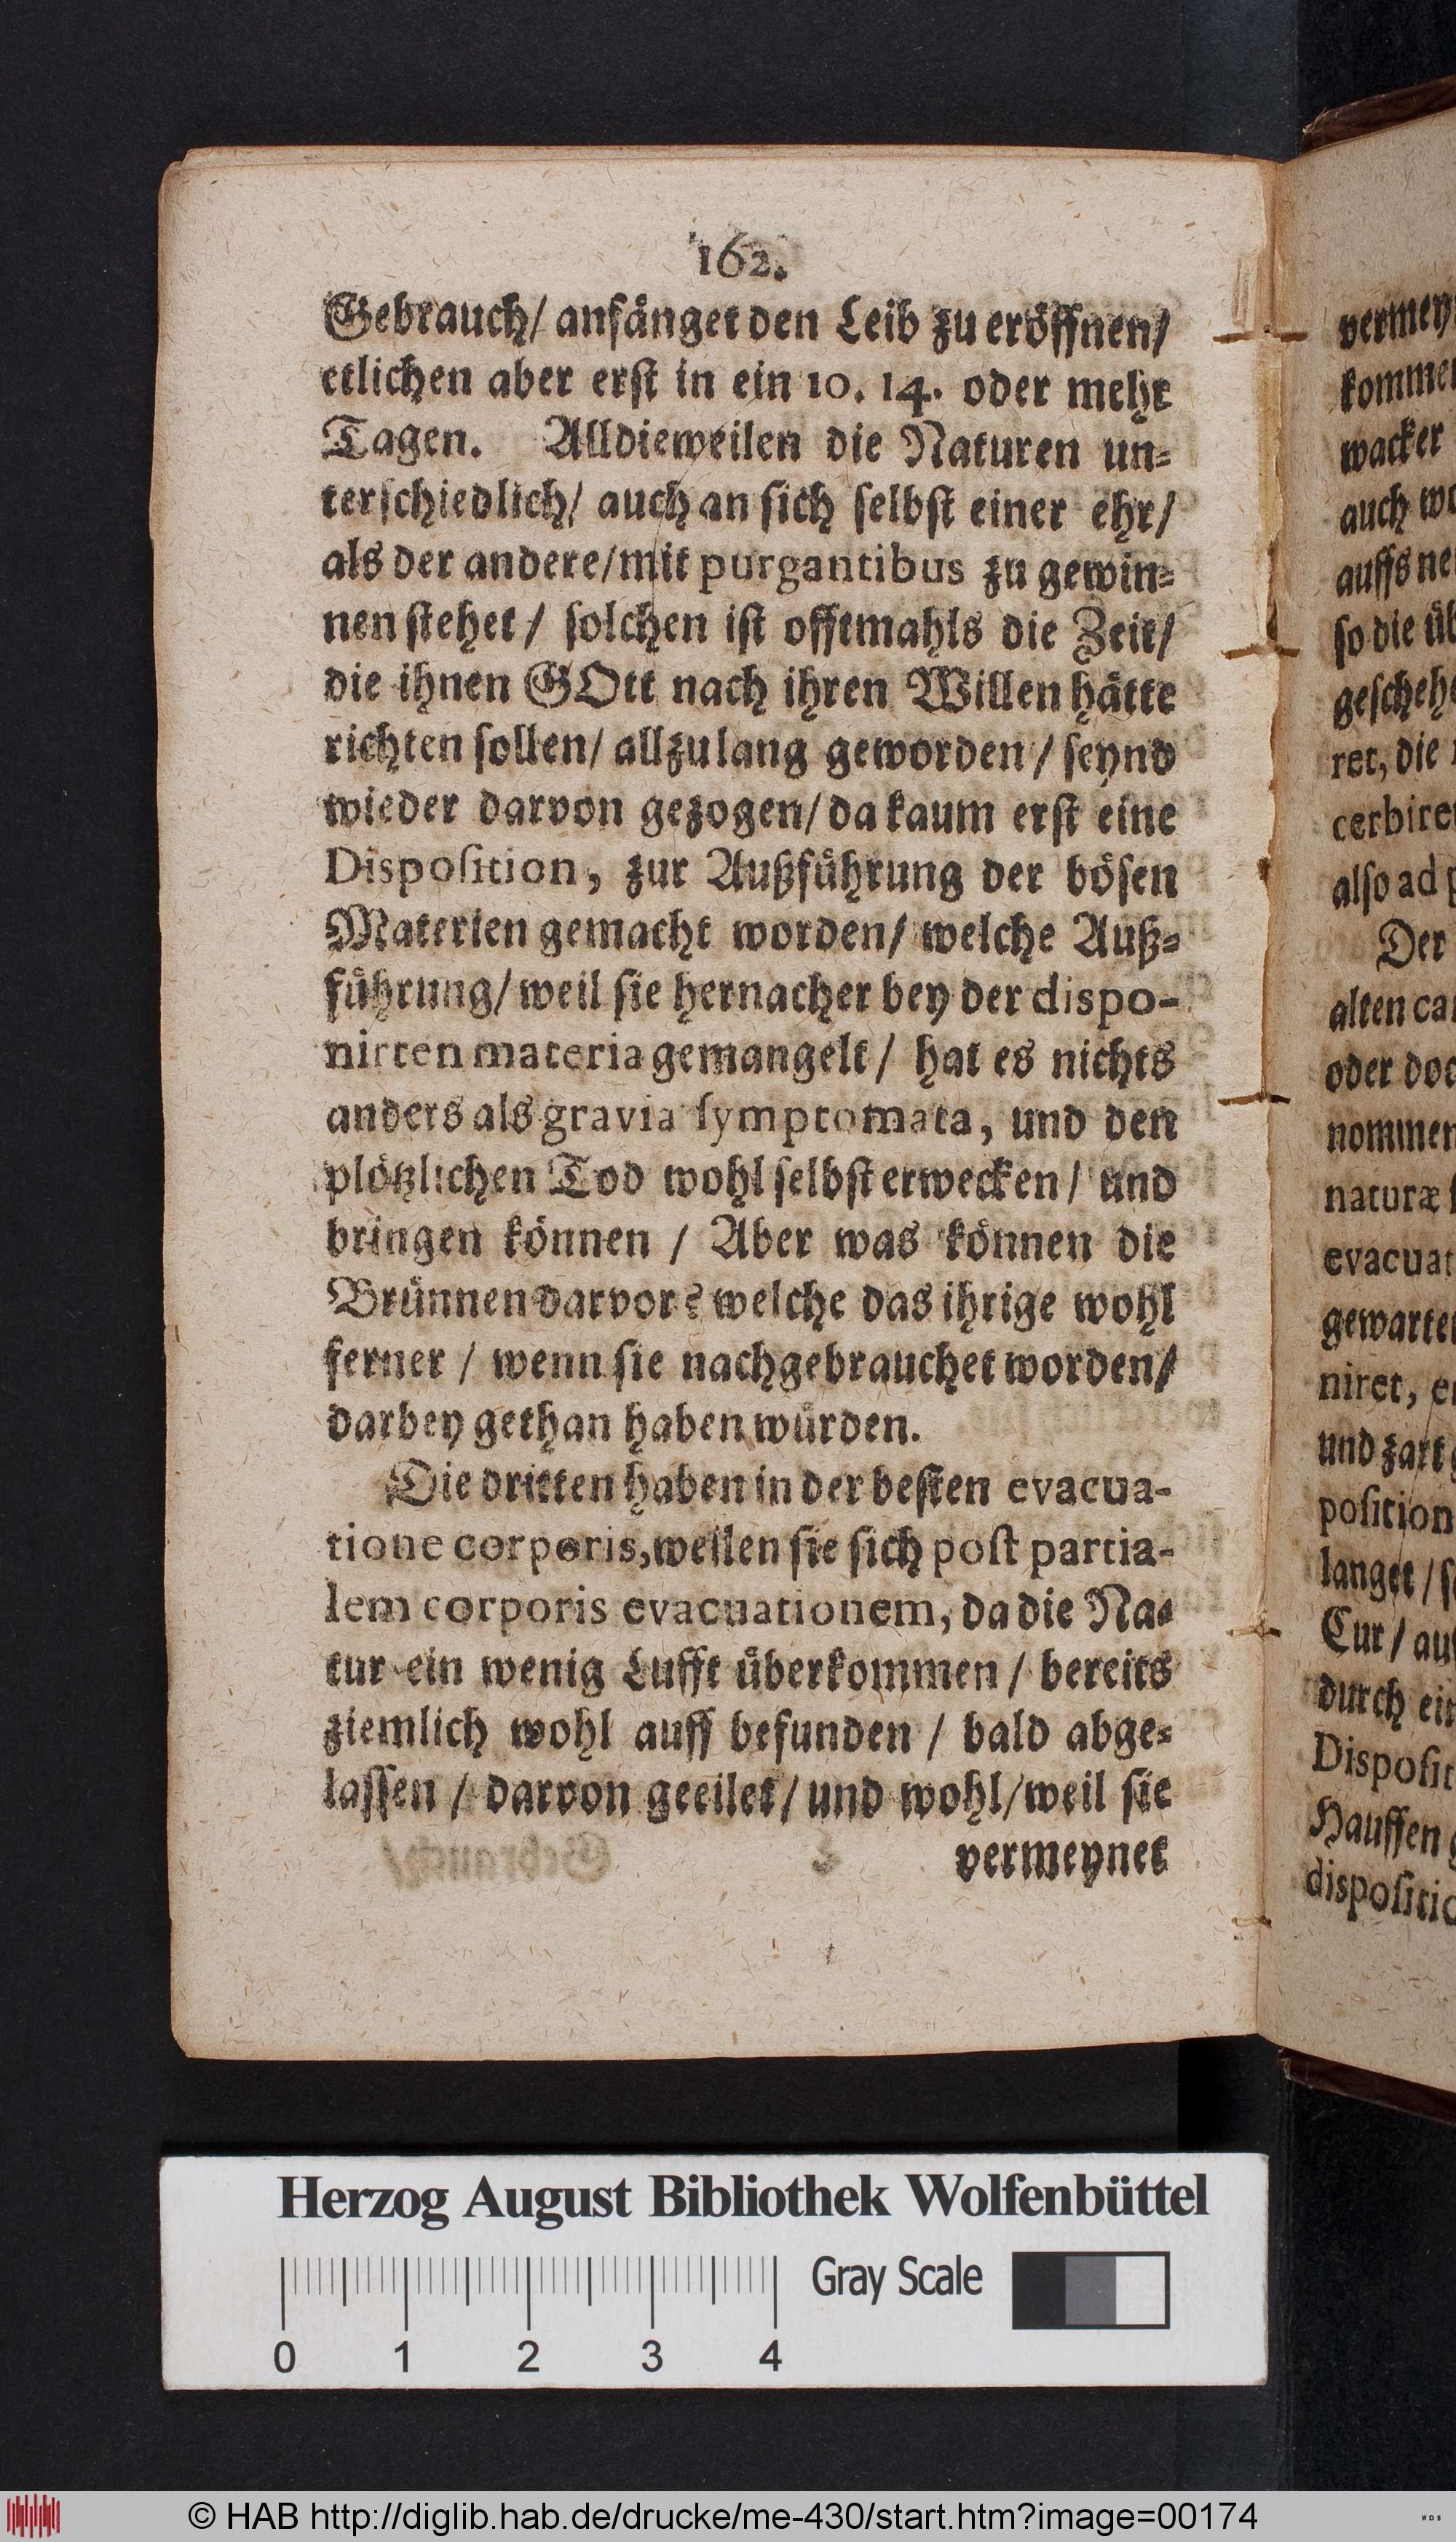 162.
Gebrauch/ anfånget den Leib zu eröffnen/
etlichen aber erſt in ein 10. 14. oder mehr
Tagen. Alldieweilen die Naturen un-
terſchiedlich/ auch an ſich ſelbſt einer ehr/
als der andere/mit purgantibus zu gewin-
nen ſtehet/ ſolchen iſt offtmahls die Zeit/
die ihnen GOtt nach ihren Willen hätte
richten ſollen/ allzulang geworden/ ſeynd
wieder darvon gezogen/ da kaum erſt eine
Diſpoſition, zur Außführung der böſen
Materien gemacht worden/ welche Auß-
führung/ weil ſie hernacher bey der dispo-
nirten materia gemangelt/ hat es nichts
anders als gravia ſymptomata, und den
plötzlichen Tod wohl ſelbſt erwecken/ und
bringen können / Aber was können die
Brünnen darvor? welche das ihrige wohl
ferner / wenn ſie nachgebrauchet worden/
darbey gethan haben würden.
Die dritten haben in der beſten evacua-
tione corporis, weilen ſie ſich poſt partia-
lem corporis evacuationem, da die Na-
tur ein wenig Lufft überkommen / bereits
ziemlich wohl auff befunden / bald abge-
laſſen / darvon geeilet/ und wohl/weil ſie
vermeynet
wacker
auch
auffs
ſo die
ret, die
alſo ad
Der
alten
oder
und
durch
Herzog August Bibliothek Wolfenbüttel
0 1 2 3 4
Gray Scale
© HAB http://diglib.hab.de/drucke/me-430/start.htm?image=00174